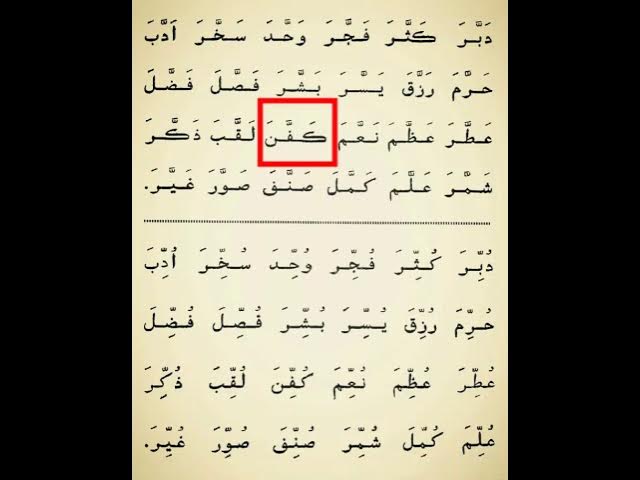 دَبَّرَ كَثَّرَ فَجَّرَ وَحَّدَ سَخَّرَ اَدَّبَ
حَرَّمَ رَزَّقَ يَسَّرَ بَشَّرَ فَصَّلَ فَضَّلَ
عَطَّرَ عَظَّمَ نَعَّمَ كَفَّنَ لَقَّبَ ذَكَّرَ
شَمَّرَ عَلَّمَ كَمَّلَ صَنَّفَ صَوَّرَ غَيَّرَ.
دُبِّرَ كُثِّرَ فُجِّرَ وُحِّدَ سُخِّرَ اُدِّبَ
حُرِّمَ رُزِّقَ يُسِّرَ بُشِّرَ فُصِّلَ فُضِّلَ
عُطِّرَ عُظِّمَ نُعِّمَ كُفِّنَ لُقِّبَ ذُكِّرَ
عُلِّمَ كُمِّلَ شُمِّرَ صُنِّفَ صُوِّرَ غُيِّرَ.